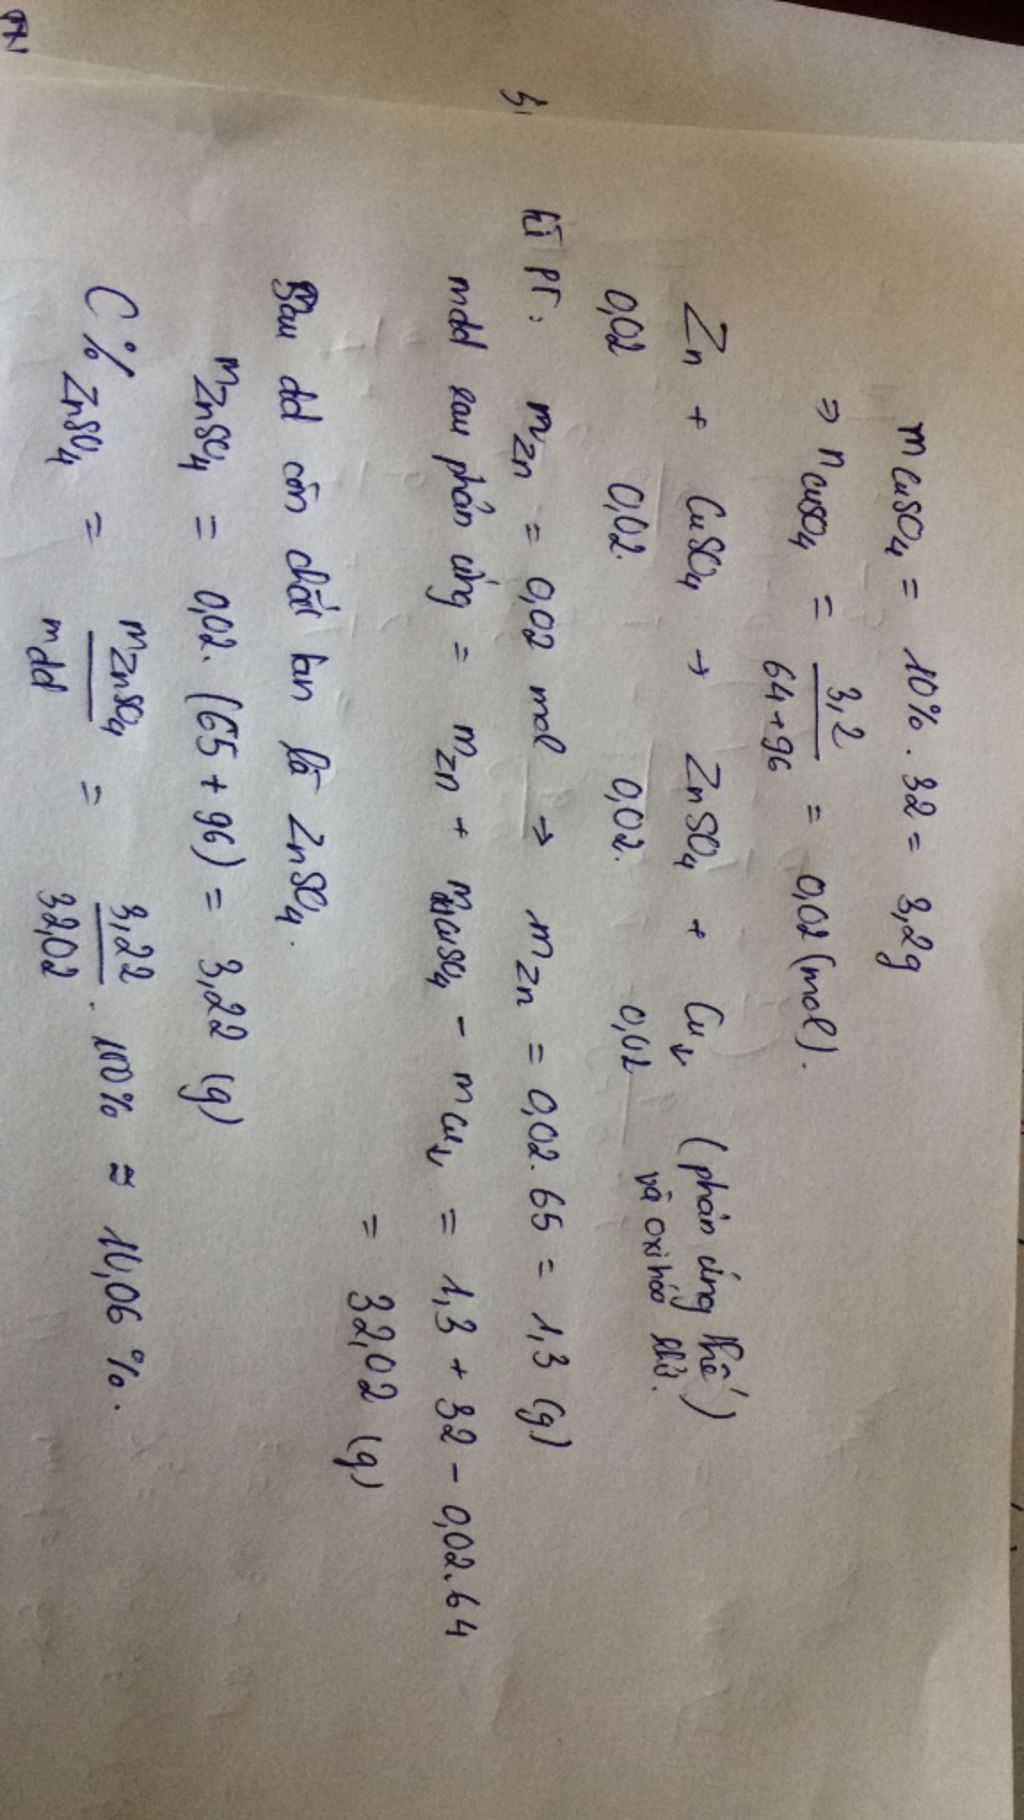 m CuSO4 = 10% . 32 = 3,2g
⇒ n CuSO4 = 3,2 / 64+96 = 0,02 (mol).
Zn + CuSO4 → ZnSO4 + Cu↓ (phản ứng thế)
0,02 0,02. 0,02. 0,02 và oxi hóa khử.
PT: mZn = 0,02 mol → mZn = 0,02.65 = 1,3 (g)
mdd sau phản ứng = mZn + mCuSO4 - mCu↓ = 1,3 + 32 - 0,02.64
= 32,02 (g)
Sau dd còn chất tan là ZnSO4.
mZnSO4 = 0,02. (65 + 96) = 3,22 (g)
C% ZnSO4 = mZnSO4 / mdd = 3,22 / 32,02 . 100% ≈ 10,06 %.